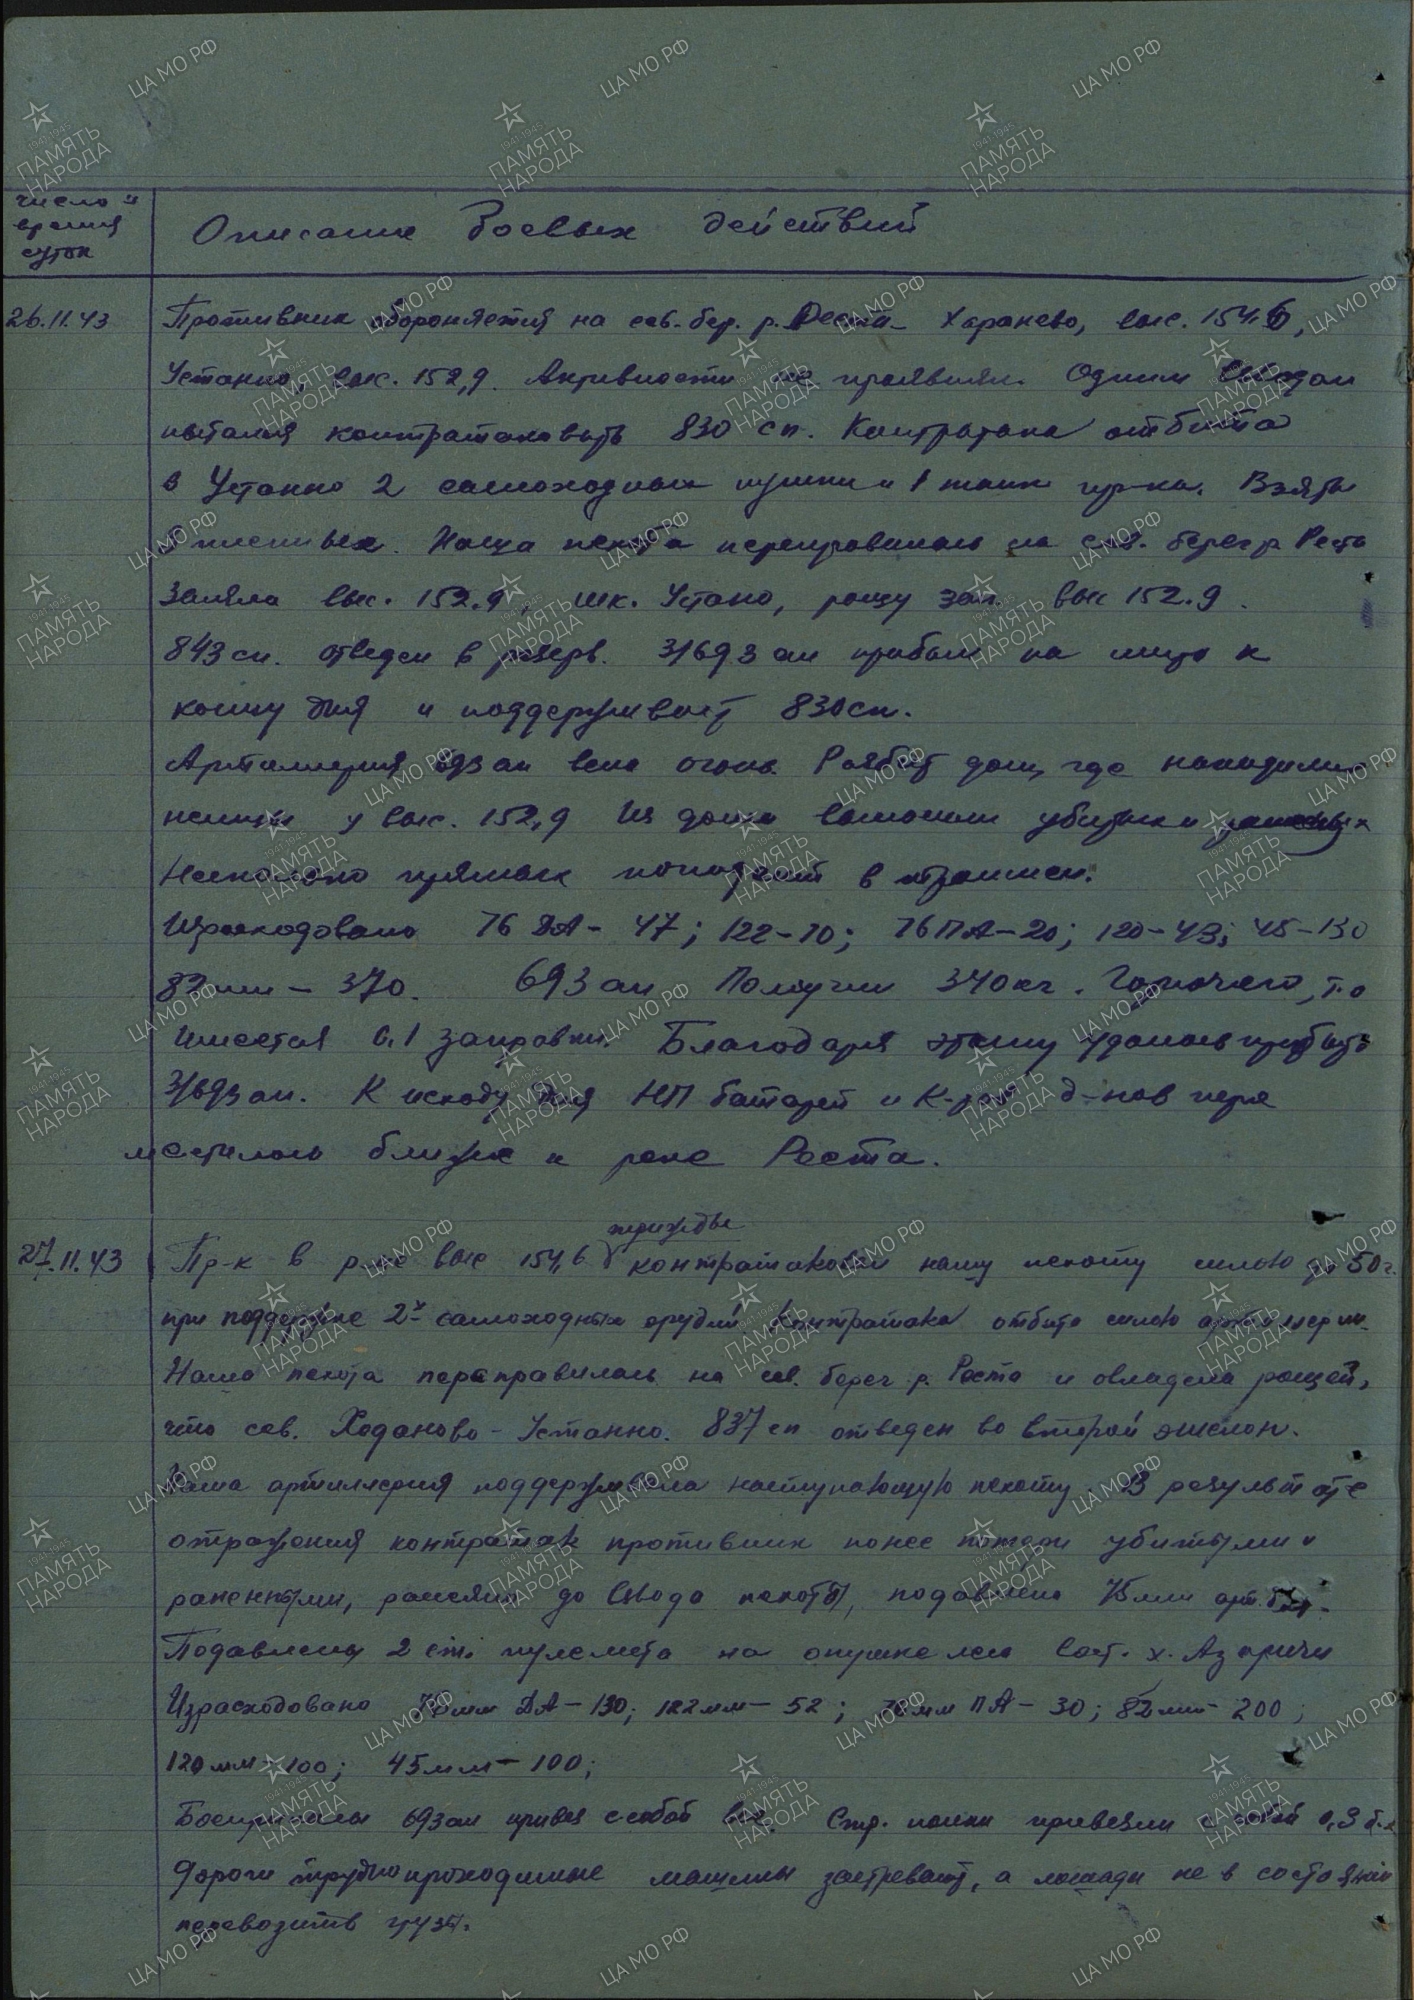 число и
время
суток
Описание боевых действий
26.11.43 Противник обороняется на сев. бер. р. Реста - Харанево, выс. 154.6,
Устанно, выс. 152,9. Активности не проявлял. Одним взводом
пытался контратаковать 830 сп. Контратака отбита
в Устанно 2 самоходных пушки и 1 танк пр-ка. Взяты
пленных. Наша пехота переправилась на сев. берег р. Реста
заняла выс. 152.9, шк. Устано, рощу зап. выс 152.9.
843 сп. отведен в резерв. 3/693 ап прибыл на место к
концу дня и поддерживает 830 сп.
Артиллерия 693 ап вела огонь. Разбит дом, где находились
немцы у выс. 152,9 Из дома выносили убитых и раненых
Несколько прямых попаданий в траншеи.
Израсходовано 76 ДА - 47; 122 - 70; 76 ПА - 20; 120 - 43; 45 - 130
82 мм - 370. 693 ап Получил 340 кг. Горючего, т.о
имеется 0,1 заправки. Благодаря этому удалось прибыть
3/693 ап. К исходу дня НП батарей и К-ров д-нов пере
местились ближе к реке Реста.
27.11.43 Пр-к в р-не выс 154,6 трижды контратаковал нашу пехоту силою до 50 ч.
при поддержке 2х самоходных орудий Контратака отбита силою артиллерии.
Наша пехота переправилась на сев. берег р. Реста и овладела рощей,
что сев. Ходаново - Устанно. 837 сп отведен во второй эшелон.
Наша артиллерия поддерживала наступающую пехоту. В результате
отражения контратак противник понес потери убитыми и
ранеными, рассеяно до взвода пехоты, подавлена 75 мм арт. бат.
Подавлены 2 ст. пулемета на опушке леса вост. х. Азаричи
Израсходовано 76 мм ДА - 130; 122 мм - 52; 76 мм ПА - 30; 82 мм - 200;
120 мм - 100; 45 мм - 100;
Боеприпасы 693 ап привез с собой все. Стр. полки привезли с собой 0,3 б.к
Дороги трудно проходимые машины застревают, а лошади не в состоянии
перевозить груз.
ЦА МО РФ
1941-1945
ПАМЯТЬ
НАРОДА